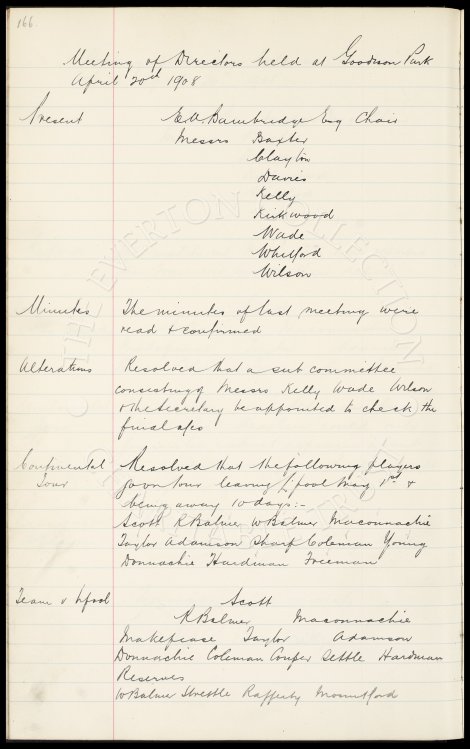 166.
Meeting of Directors held at Goodison Park
April 20th 1908
Present E A Bainbridge Esq Chair
Messrs Baxter
Clayton
Davies
Kelly
Kirkwood
Wade
Whitford
Wilson
Minutes The minutes of last meeting were
read & confirmed
Alterations Resolved that a sub committee
consisting of Messrs Kelly Wade Wilson
& the Secretary be appointed to check the
final a/cs
Continental Resolved that the following players
Tour go on tour leaving L'pool May 1st &
being away 10 days:-
Scott R Balmer W Balmer Maconnachie
Taylor Adamson Sharp Coleman Young
Donnachie Hardman Freeman
Team v L'pool Scott
R Balmer Maconnachie
Makepeace Taylor Adamson
Donnachie Coleman Couper Settle Hardman
Reserves
W Balmer Strettle Rafferty Mountford
THE EVERTON COLLECTION